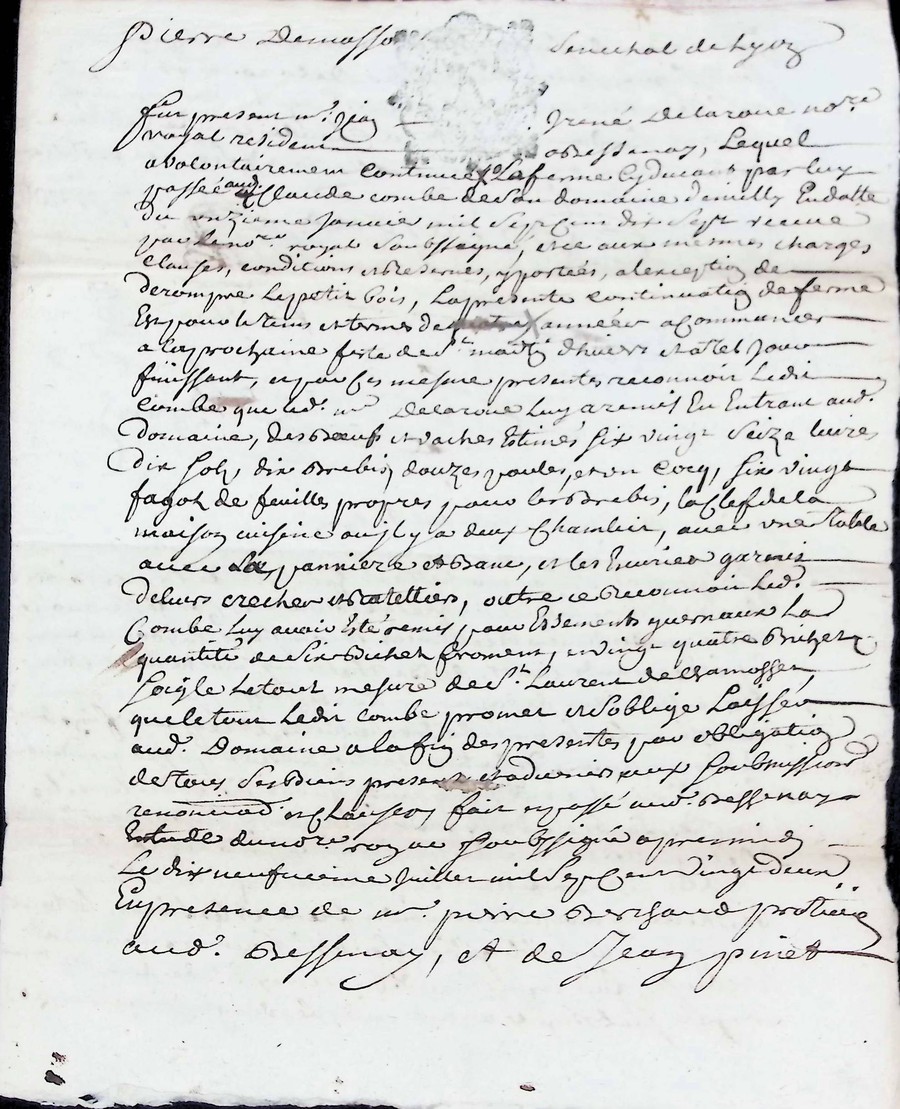 Pierre Demasso Senechal de Lyon
fut present mr. Jean Irené Delaroue nore.
royal resident a Bessenay, Lequel
a volontairement continué La ferme Cydevant par luy
passée aud. Claude combe de Son domaine Endatte
du unzieme Janvier mil Sept Cent dix Sept recue
par le nore. royal Soubssigné, et ce aux mesmes charges
Clauses, conditions et Reserves, y portées, a lexception de
derompre Le petit bois, La presente continuation de ferme
Est pour le tems et termes de années a Commancer
a la prochaine feste de St. martin dhivers et a tel Jour
finissant, et par Ces mesme presentes reconnoit Ledit
Combe que led. mr. Delaroue Luy a remis En Entrant aud.
Domaine, des Bœufs et vaches Estimés Six vingt Seize livres
Dix Solz, dix Brebis, douzes poules, et un Cocq, Six vingt
fagot de feuilles propres pour les Brebis, la Clef de la
maison cuisine ou il y a deux Chambres, avec une Table
avec La panniere et Banc, et les Ecuries garnies
de leurs creches et Ratelliers, outre ce Reconnoit Led.
Combe Luy avoir Esté remis, pour Essements yvernaux La
quantité de Six Bichet froment, et vingt quatre Bichet
Soigle Le tout mesure de St. Laurent de Chamosset
que le tout Ledit Combe promet et Soblige Laisser
aud. Domaine a la fin des presentes par obligation
de tous Ses Biens presents et advenir aux Soubmissions
renonciaon. et Clauses fait et passé aud. Bessenay
Estude du nore royal Soubssigné apresmidi
Le dix neufvieme Juillet mil Sept Cent Vingt deux
En presence de mr. pierre Berthaud praticien
aud. Bessenay, et de Jean pinet